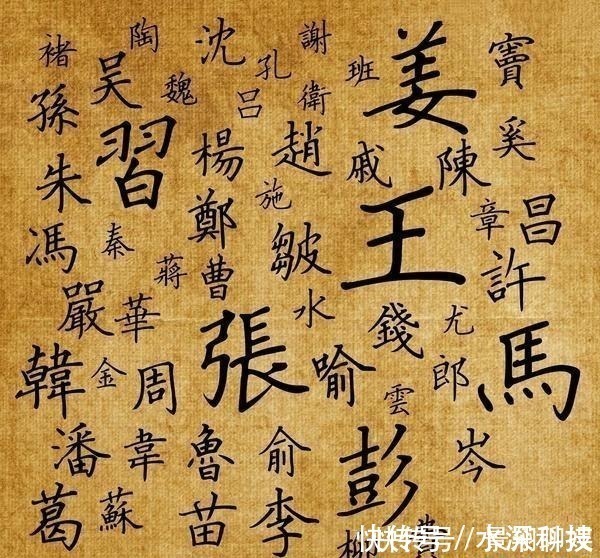 褚 陶 沈 謝 姜 竇
吴 魏 孔 班
孫 吕 衛 奚
習 楊 趙 戚 陳
朱 鄭 施 王 章 昌
馮 秦 蔣 曹 皺 許
嚴 華 水 錢 尤
韓 金 周 張 喻 雲 郎 馬
潘 韋 魯 俞 彭 岑
葛 蘇 苗 李
快传号//